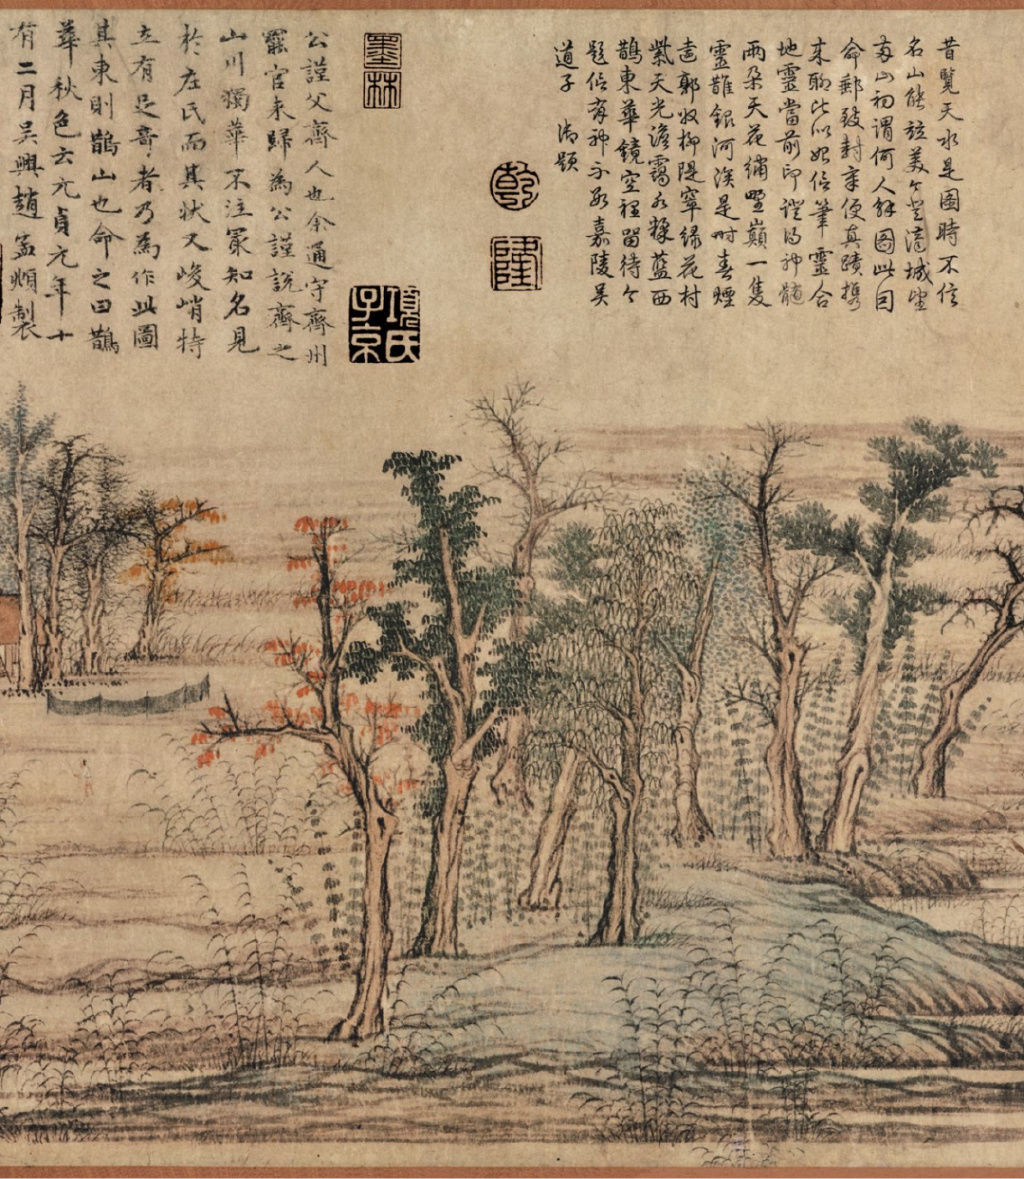 昔覽天水是圖時不信
名山能竝美今登濟城望
兩山初謂何人解圖此因
命郵致封章便真蹟攜
來聊比似始信筆靈合
地靈當前印證得神髓
兩朵天花繡野巔一隻
靈鵲銀河涘是時春煙
遠郭收柳隄窣綠花村
紫天光澹靄水揉藍西
鵲東華鏡空裡留待今
題信有神不數嘉陵吳
道子 御題
乾
隆
墨林
項氏子京
公謹父齊人也余通守齊州
罷官來歸為公謹說齊之
山川獨華不注最知名見
於左氏而其狀又峻峭特
立有足奇者乃為作此圖
其東則鵲山也命之曰鵲
華秋色云元貞元年十
有二月吳興趙孟頫製